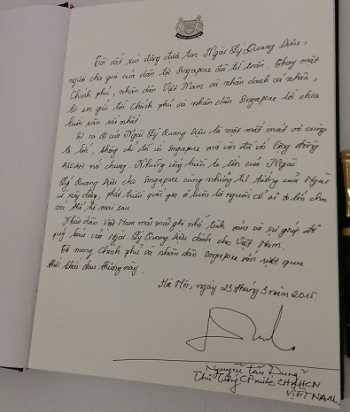 Tôi rất xúc động được tin Ngài Lý Quang Diệu,
người cha già của dân tộc Singapore đã từ trần. Thay mặt
Chính phủ, nhân dân Việt Nam và nhân danh cá nhân,
tôi xin gửi tới Chính phủ và nhân dân Singapore lời chia
buồn sâu sắc nhất.
Sự ra đi của Ngài Lý Quang Diệu là một mất mát vô cùng
to lớn, không chỉ đối với Singapore mà còn đối với Cộng đồng
ASEAN nói chung. Những cống hiến to lớn của Ngài
Lý Quang Diệu cho Singapore cùng những tư tưởng của Ngài
về xây dựng, phát triển quốc gia
Nhân dân Việt Nam mãi mãi ghi nhớ tình cảm và sự giúp đỡ
quý báu của Ngài Lý Quang Diệu dành cho Việt Nam.
Tôi mong Chính phủ và nhân dân Singapore sớm vượt qua
thời khắc đau thương này.
Hà Nội, ngày 23 tháng 3 năm 2015
Nguyễn Tấn Dũng
Thủ tướng CP nước CHXHCN
VIỆT NAM